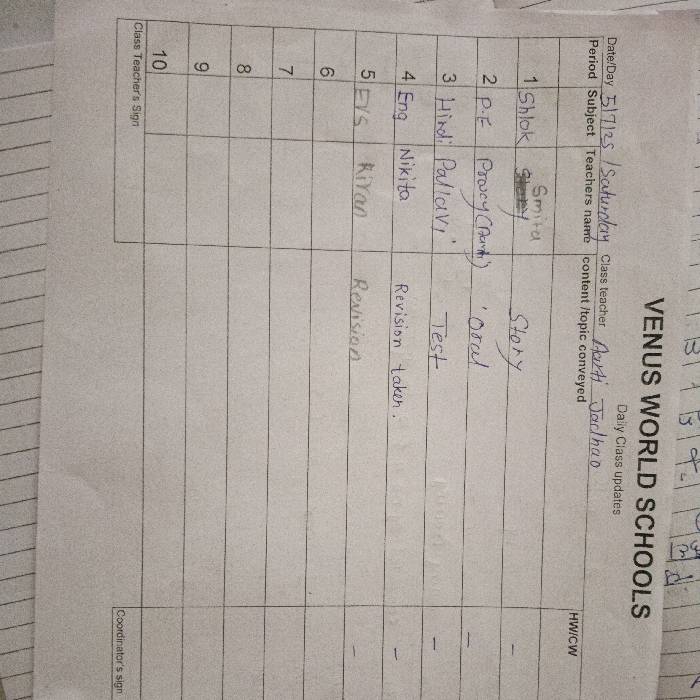 VENUS WORLD SCHOOLS
Daily Class updates
Date/Day 5/7/25 / Saturday Class teacher Aarti Jadhao
Period Subject Teachers name content /topic conveyed HW/CW
1 Shlok Smita Story -
2 P.E Proxy (Aarti) Oral -
3 Hindi Pallavi Test -
4 Eng Nikita Revision taken. -
5 EVS Kiran Revision -
6
7
8
9
10
Class Teacher's Sign Coordinator's sign